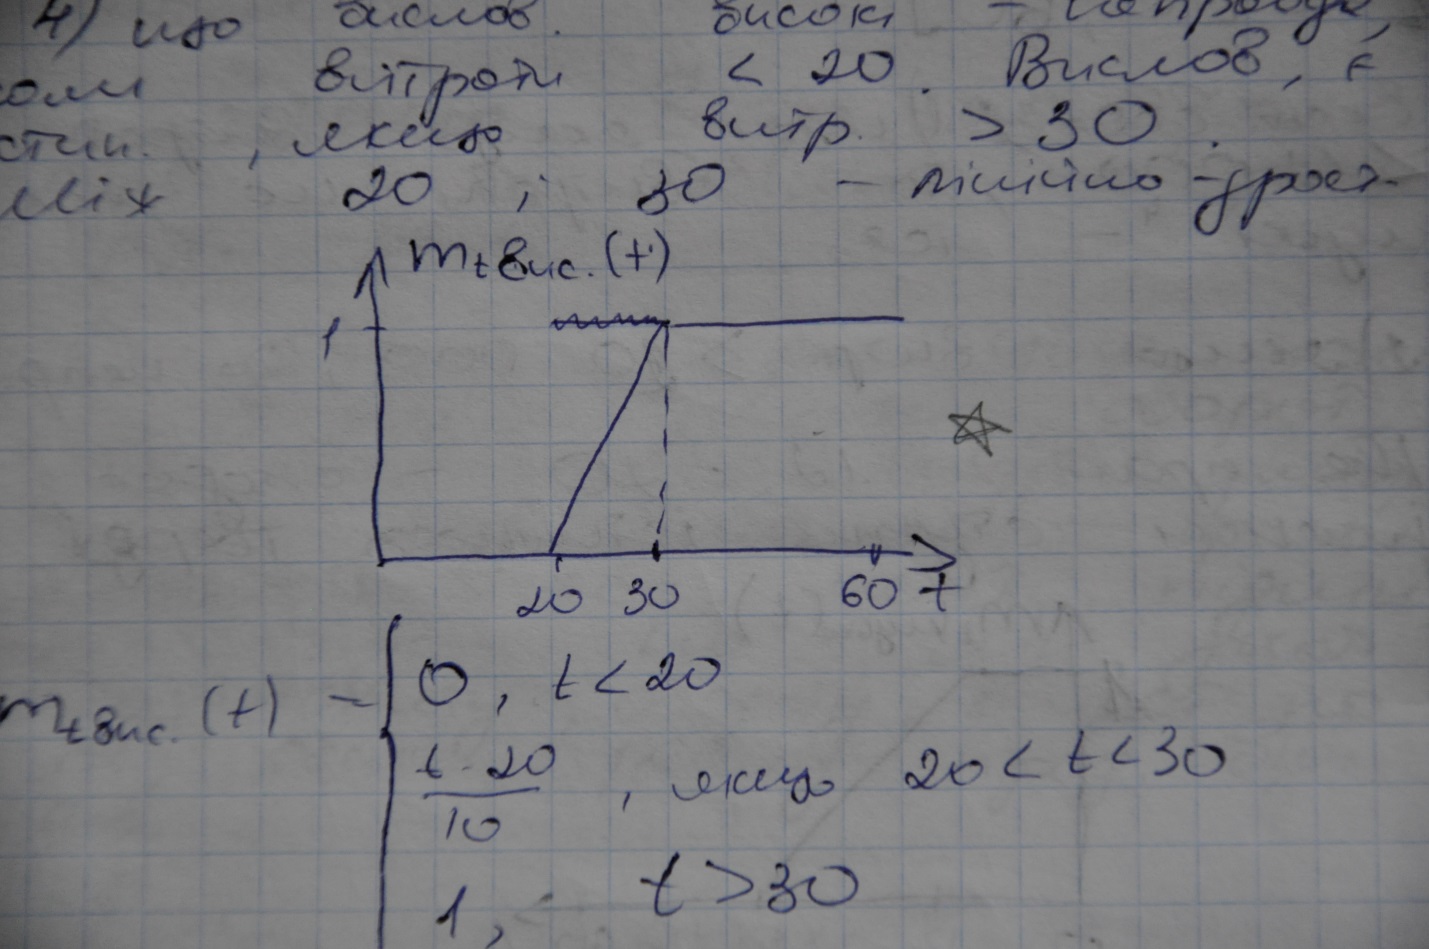 4) що вислов. високі –
коли витрати < 20. Вислов. є
стин., якщо витр. > 30.
Між 20 і 30 – лінійно-зрост.
m_t вис. (t)
1
20 30 60 t
m_t вис. (t) – { 0, t < 20
t - 20
10 , якщо 20 < t < 30
1, t > 30